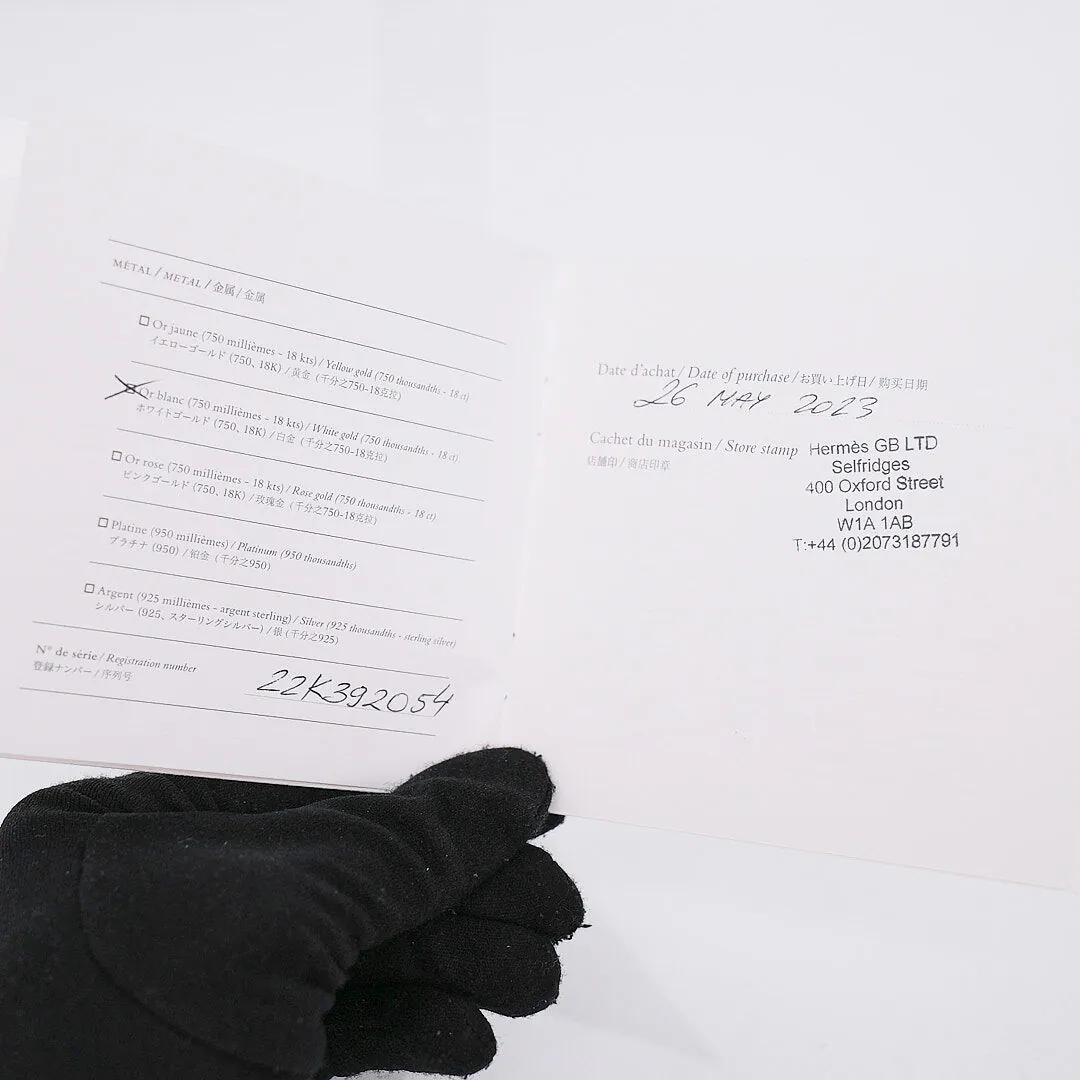 MÉTAL / METAL / 金属 / 金属
Or jaune (750 millièmes - 18 kts) / Yellow gold (750 thousandths - 18 ct)
イエローゴールド (750, 18K) / 黄金 (千分之750-18克拉)
Or blanc (750 millièmes - 18 kts) / White gold (750 thousandths - 18 ct)
ホワイトゴールド (750, 18K) / 白金 (千分之750-18克拉)
Or rose (750 millièmes - 18 kts) / Rose gold (750 thousandths - 18 ct)
ピンクゴールド (750, 18K) / 玫瑰金 (千分之750-18克拉)
Platine (950 millièmes) / Platinum (950 thousandths)
プラチナ (950) / 铂金 (千分之950)
Argent (925 millièmes - argent sterling) / Silver (925 thousandths - sterling silver)
シルバー (925, スターリングシルバー) / 银 (千分之925)
N° de série / Registration number
登録ナンバー / 序列号
22K392054
Date d'achat / Date of purchase / お買い上げ日 / 购买日期
26 MAY 2023
Cachet du magasin / Store stamp
店舗印 / 商店印章
Hermès GB LTD
Selfridges
400 Oxford Street
London
W1A 1AB
T:+44 (0)2073187791